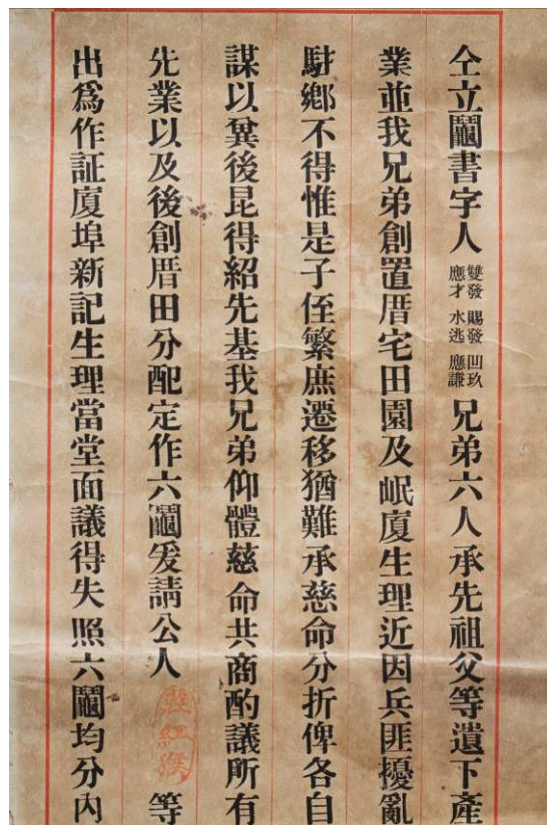 仝立鬮書字人 雙發 賜發 凹玖 應才 水逃 應謙 兄弟六人承先祖父等遺下產
業並我兄弟創置厝宅田園及岷廈生理近因兵匪擾亂
駐鄉不得惟是子侄繁庶遷移猶難承慈命分折俾各自
謀以冀後昆得紹先基我兄弟仰體慈命共商酌議所有
先業以及後創厝田分配定作六鬮爰請公人 等
出爲作証廈埠新記生理當堂面議得失照六鬮均分內